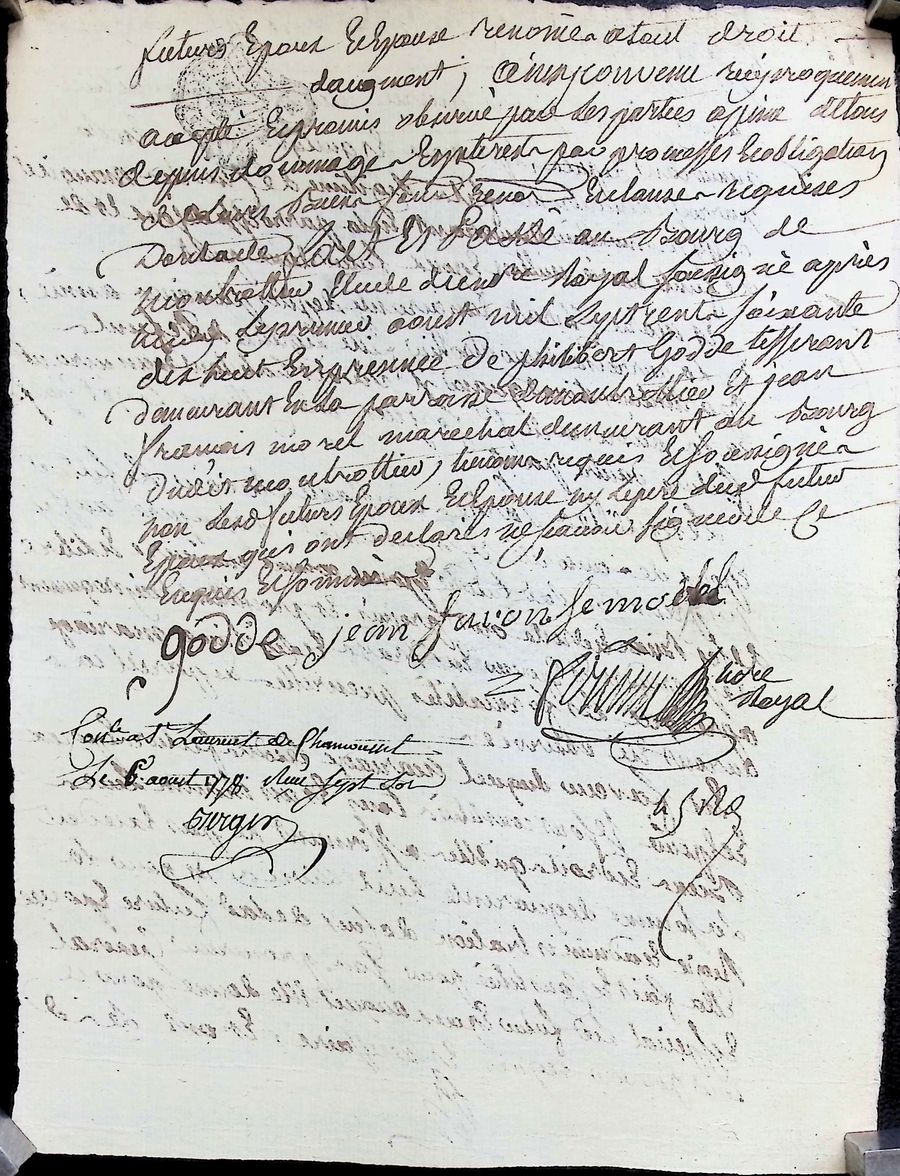 futurs Epoux Et Epouse renonce a tout droit
daugment, Ainsy convenu reciproquemen
accepté Et promis observé par les parties a peine de tous
depens dommage Et interest par promesses Et obligation
de leurs Biens Et clause requises
fait Et Passé au Bourg de
montrottier Etude dud nore Royal soussigné après
midy Le premier aoust mil sept cent soixante
dix huit En presence de philibert Godde tisserant
demeurant En la parroisse de montrottier Et jean
francois morel marechal demeurant au Bourg
dudit montrottier, temoins requis Et soussigné
non Lesd futurs Epoux Et Epouse ny Le pere dud futur
Epoux qui ont declaré ne scavoir signer de ce
Enquis Et sommé
godde jean franonse morel
nore
Royal
Conlé a St Laurent de Chamousset
Le 6 aoust 1778 Recu sept sols